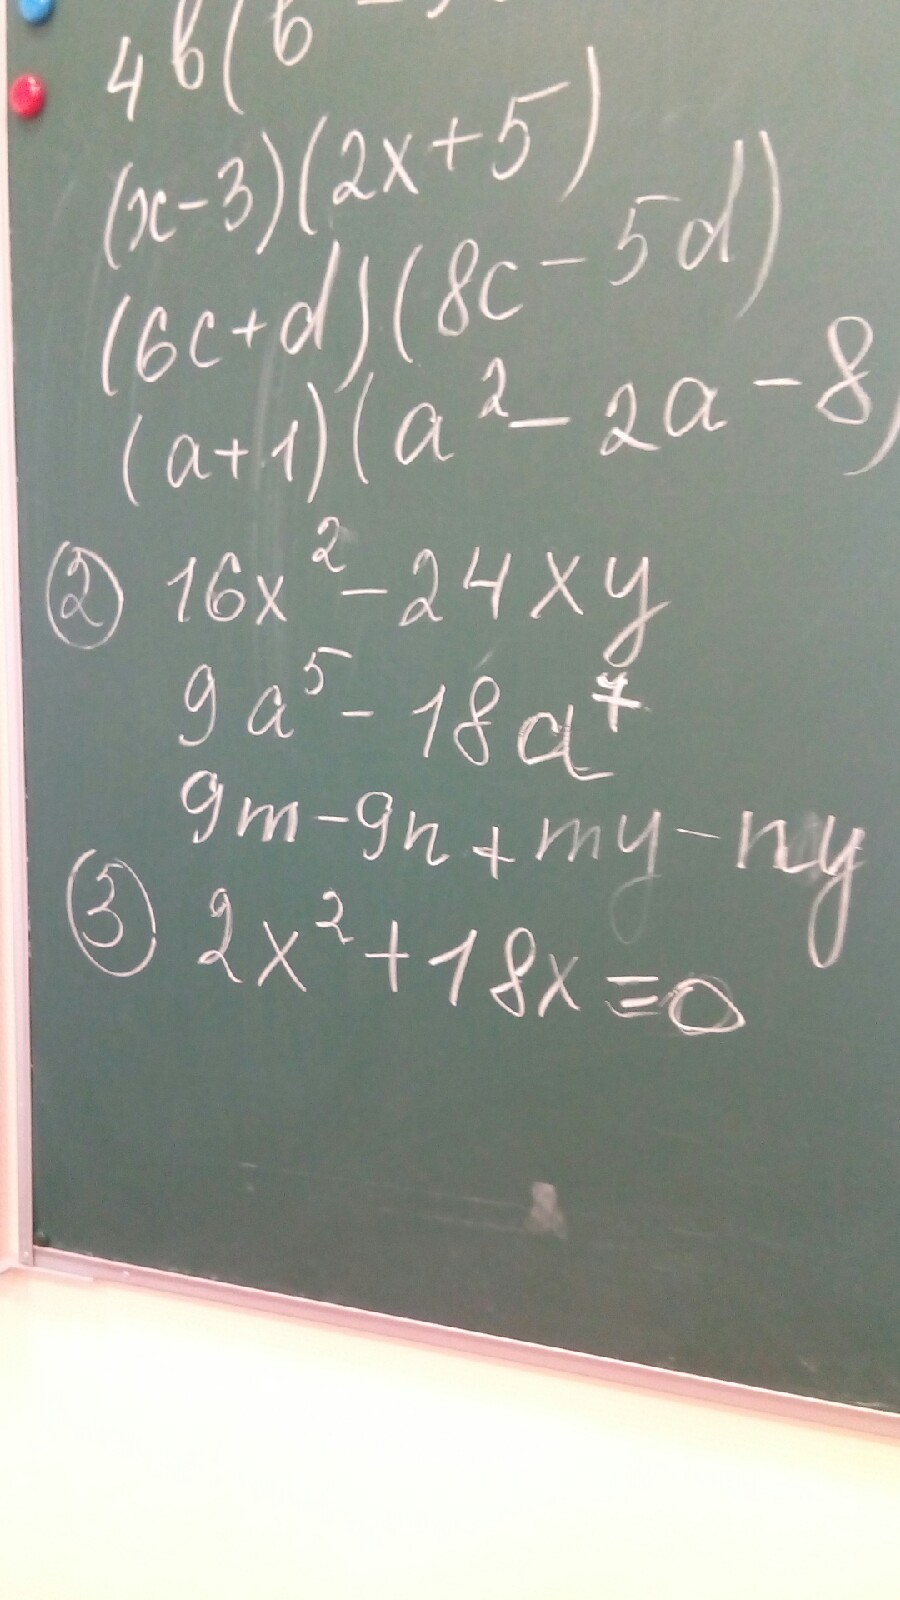 4b(b -
(x-3)(2x+5)
(6c+d)(8c-5d)
(a+1)(a²-2a-8)
② 16x²-24xy
9a⁵-18a⁷
9m-9n+my-ny
③ 2x²+18x=0